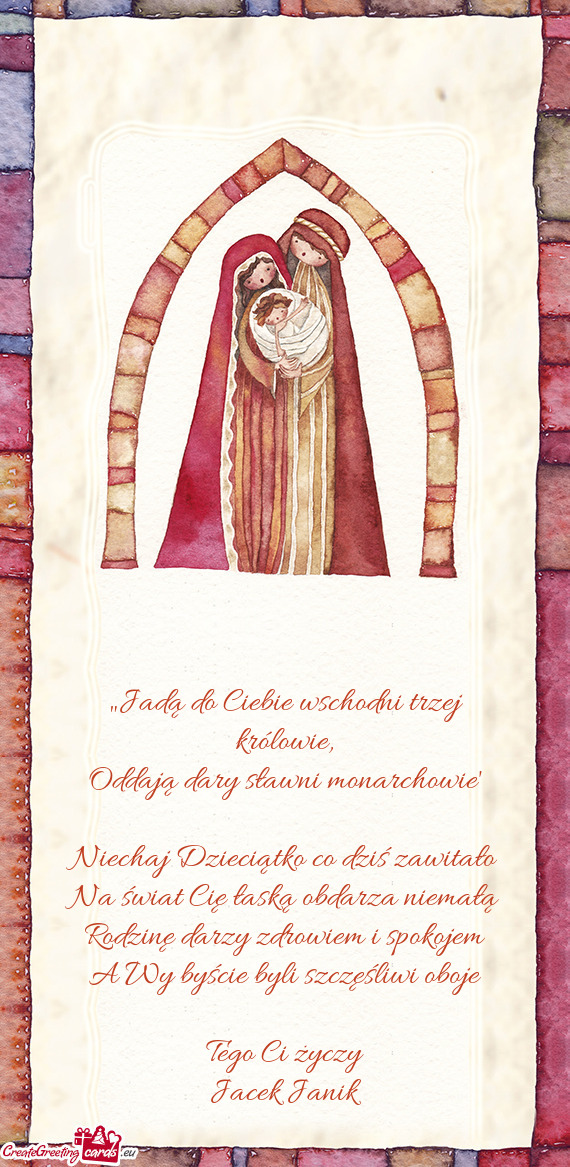 „Jadą do Ciebie wschodni trzej
królowie,
Oddają dary sławni monarchowie'
Niechaj Dzieciątko co dziś zawitało
Na świat Cię łaską obdarza niemałą
Rodzinę darzy zdrowiem i spokojem
A Wy byście byli szczęśliwi oboje
Tego Ci życzy
Jacek Janik
CreateGreeting cards .eu